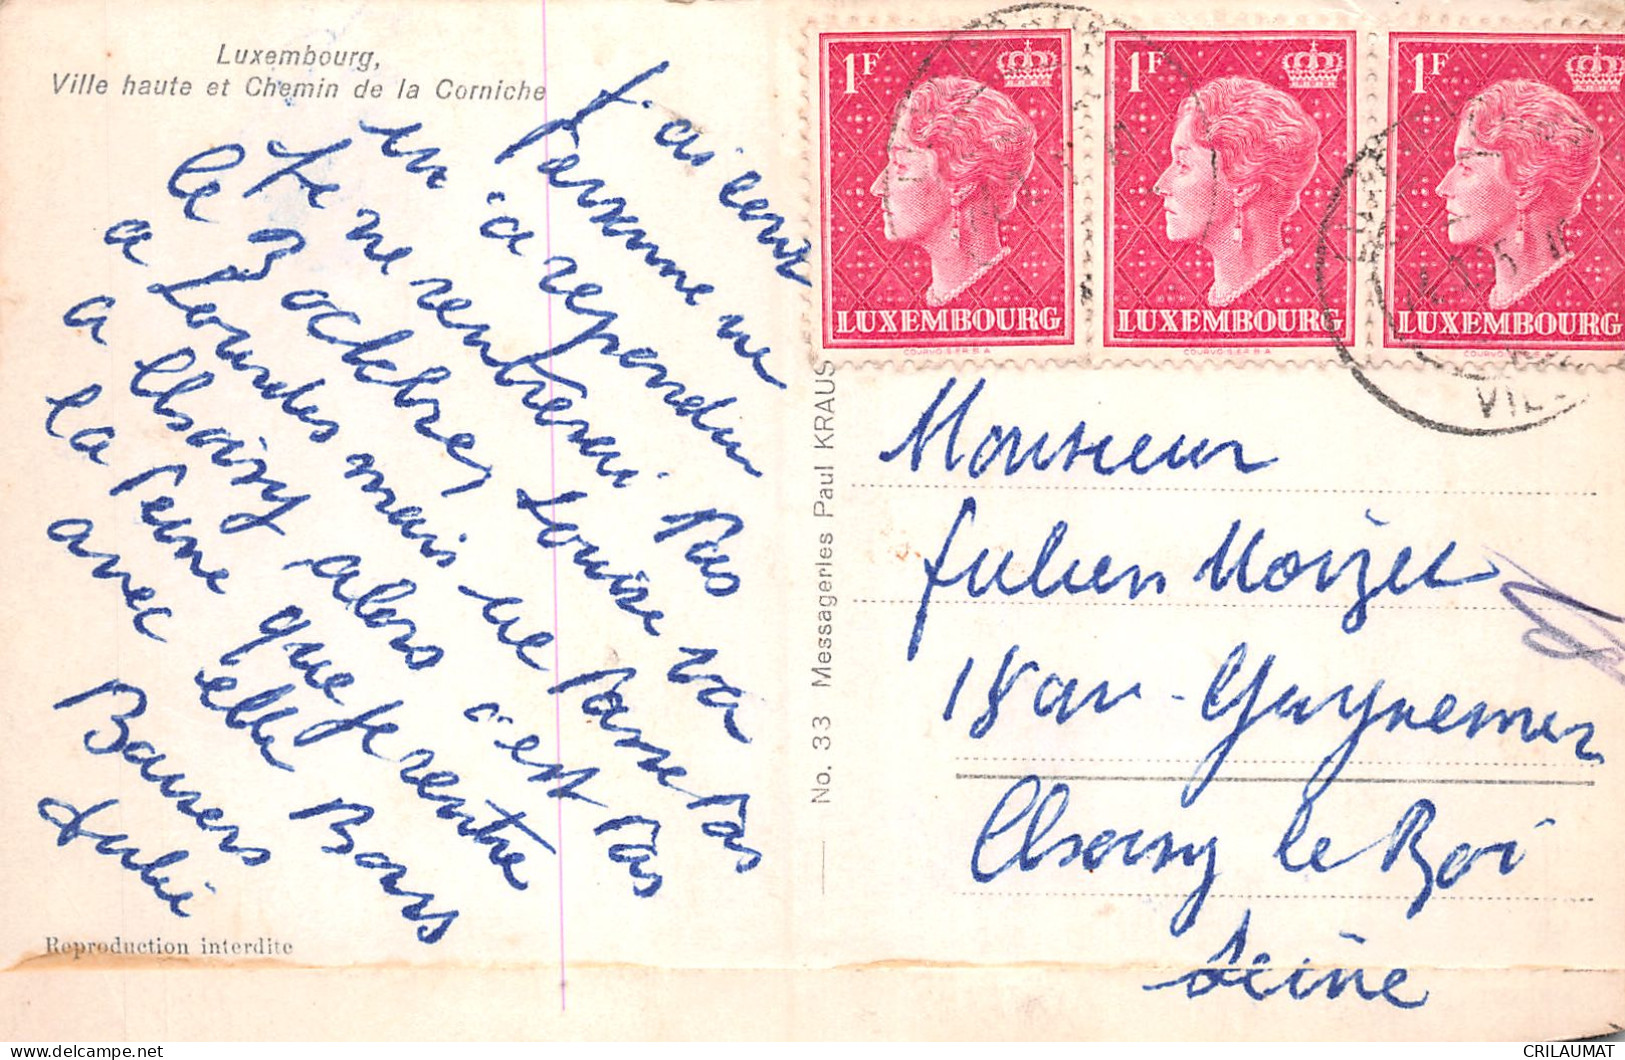 Luxembourg,
Ville haute et Chemin de la Corniche
j'ai écrit
Personne ne
m'a repondu
Je ne rentrerai Pas
le 3 octobre, Louise va
a Lourdes mais ne Passe Pas
a Choisy alors c'est Pas
la Peine que je rentre
avec elle Bons
Baisers
Reproduction interdite
No. 33 Messageries Paul KRAUS
1F
LUXEMBOURG
COURVOISIER S.A.
1F
LUXEMBOURG
COURVOISIER S.A.
1F
LUXEMBOURG
Monsieur
Julien Moizet
18 av. Guynemer
Choisy le Roi
Seine
CRILAUMAT